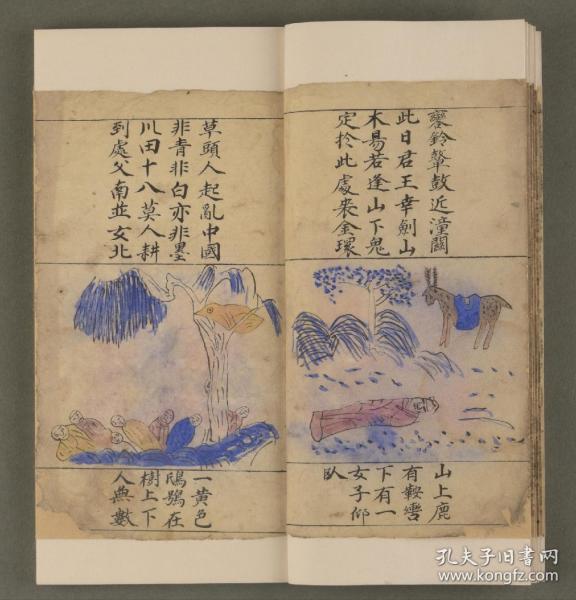 鈴鼙鼓近潼關
此日君王幸劍山
木易若逢山下鬼
定於此處喪金環
山上鹿
有鞍轡
下有一
女子仰
臥
草頭人起亂中國
非青非白亦非墨
川田十八莫人耕
到處父南並女北
一黃色
鴟鴞在
樹上下
人無數
孔夫子旧书网
www.kongfz.com